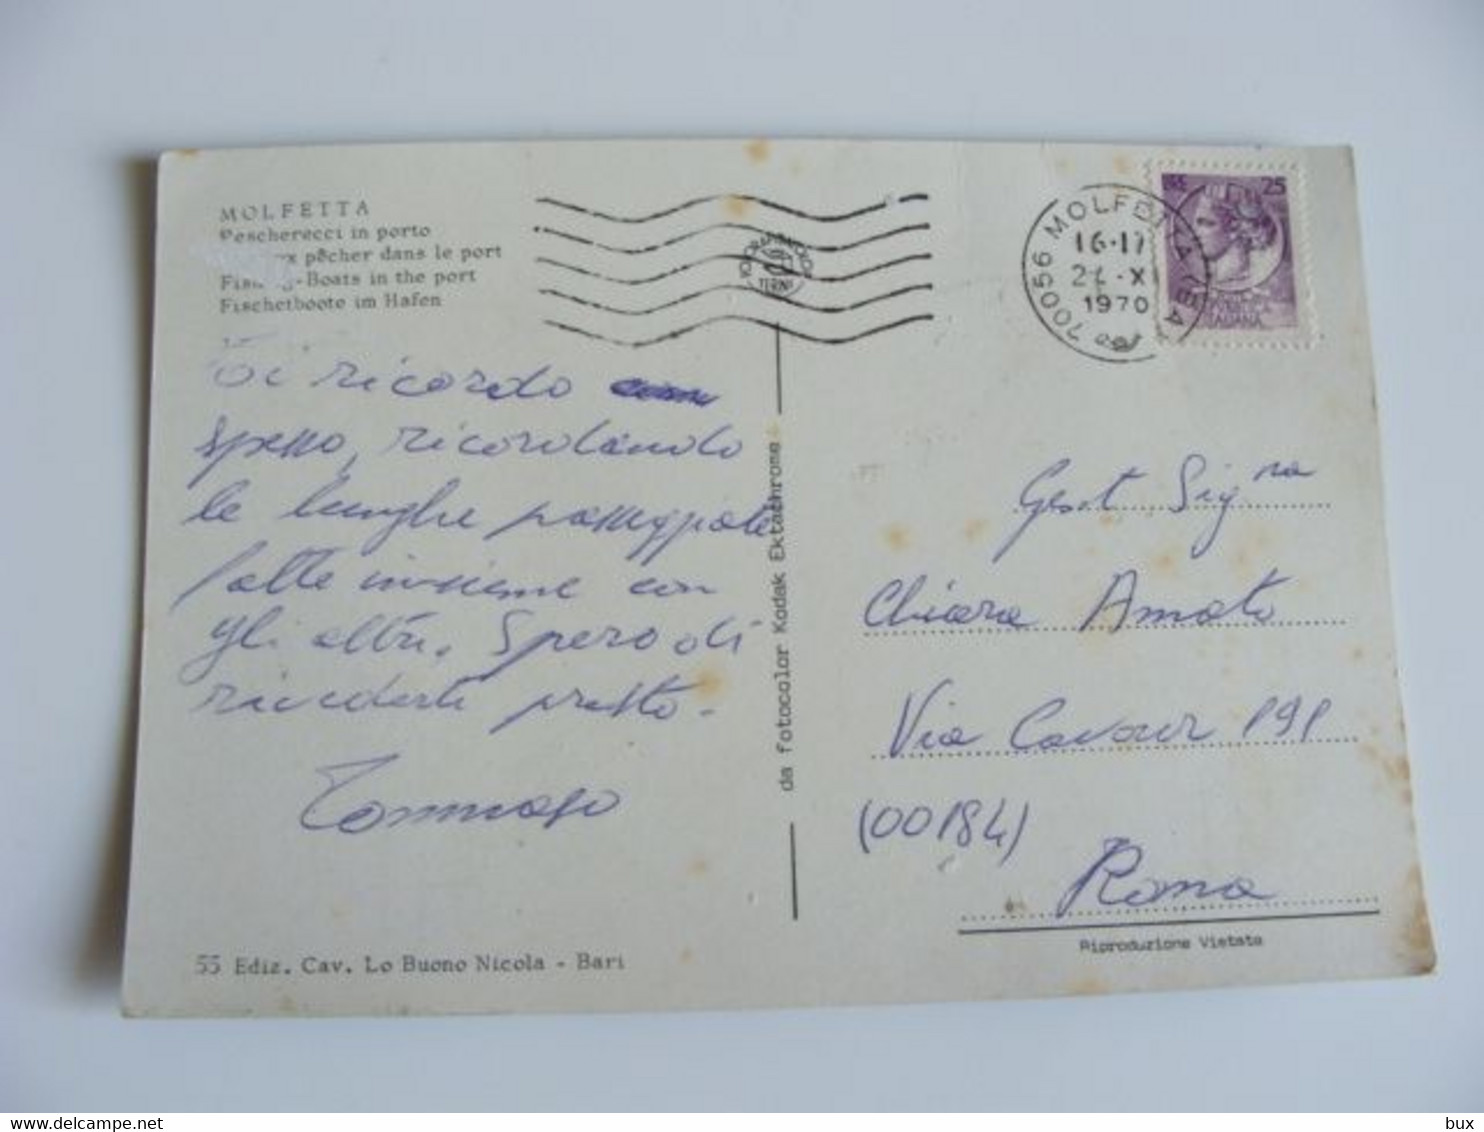 MOLFETTA
Pescherecci in porto
pêcher dans le port
-Boats in the port
Fischetboote im Hafen
70056 MOLFETTA (BA)
16-17
1970
25
TERNI
Ti ricordo
spesso, ricordando
le lunghe passeggiate
fatte insieme con
gli altri. Spero di
rivederti presto.
Tommaso
da fotocolor Kodak Ektachrome
Gent Sig.ra
Chiara Amato
Via Cavour 191
(00184)
Roma
Riproduzione Vietata
55 Ediz. Cav. Lo Buono Nicola - Bari
bux